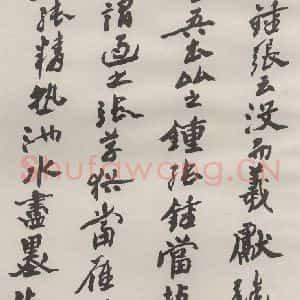 鍾張云没而羲獻
吾書比之鍾張鍾當抗
謂過之張草猶當雁
張精熟池水盡墨
Shufawang.CN